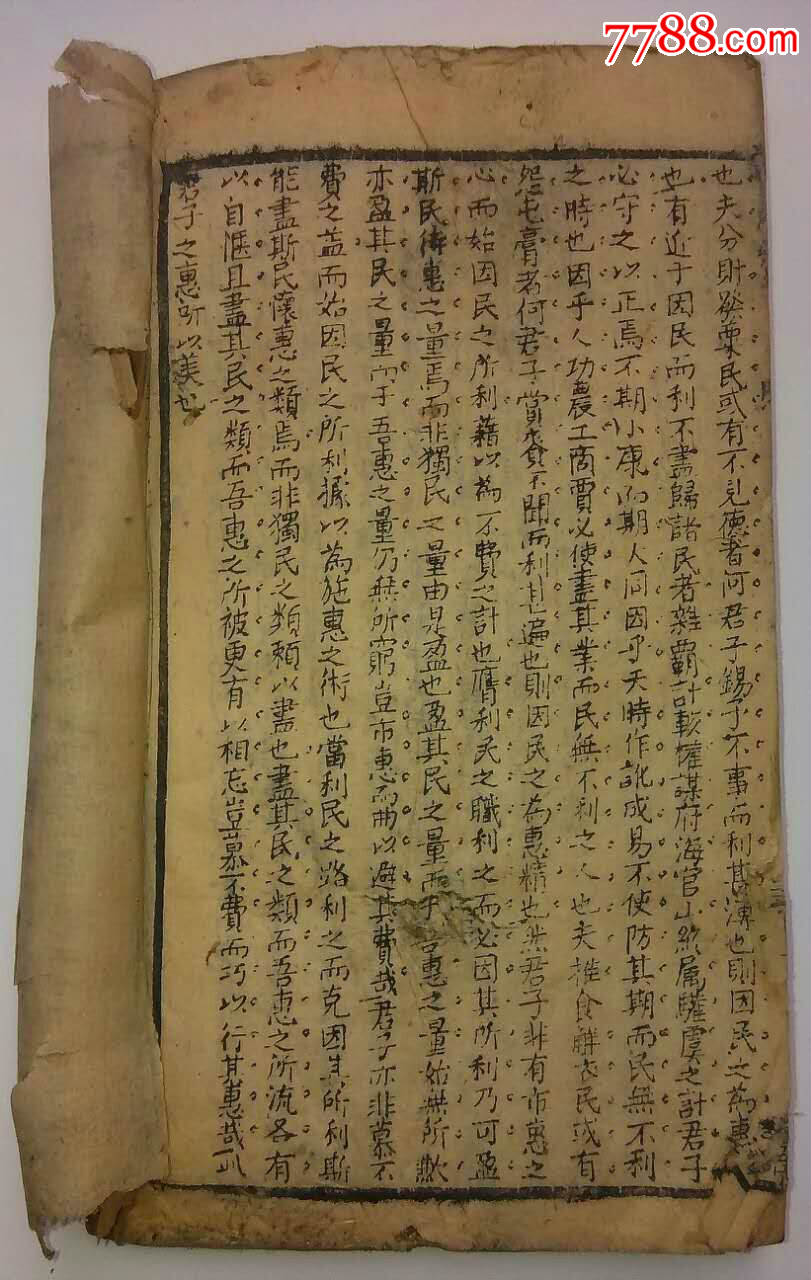 7788.com
也夫分財發粟民或有不見德者何君子錫予不事而利甚溥也則因民之為惠
也有近于因民而利不盡歸諸民者雜霸計較權謀府海官山終属驩虞之計君子
必守之以正焉不期小康而期人同因乎天時作訛成易不使防其期而民無不利
之時也因乎人功農工商賈必使盡其業而民無不利之人也夫推食解衣民或有
怨屯膏者何君子賞賚不聞而利甚遍也則因民之為惠精也然君子非有市惠之
心而始因民之所利藉以為不費之計也膺利民之職利之而必因其所利乃可盈
斯民待惠之量焉而非獨民之量由是盈也盈其民之量而于吾惠之量始無所歉
亦盈其民之量而于吾惠之量仍無所窮豈市惠而曲以避其費哉君子亦非慕不
費之益而始因民之所利據以為施惠之術也當利民之路利之而克因其所利斯
能盡斯民懷惠之類焉而非獨民之類賴以盡也盡其民之類而吾惠之所流各有
以自愜且盡其民之類而吾惠之所被更有以相忘豈慕不費而巧以行其惠哉此
君子之惠所以美也